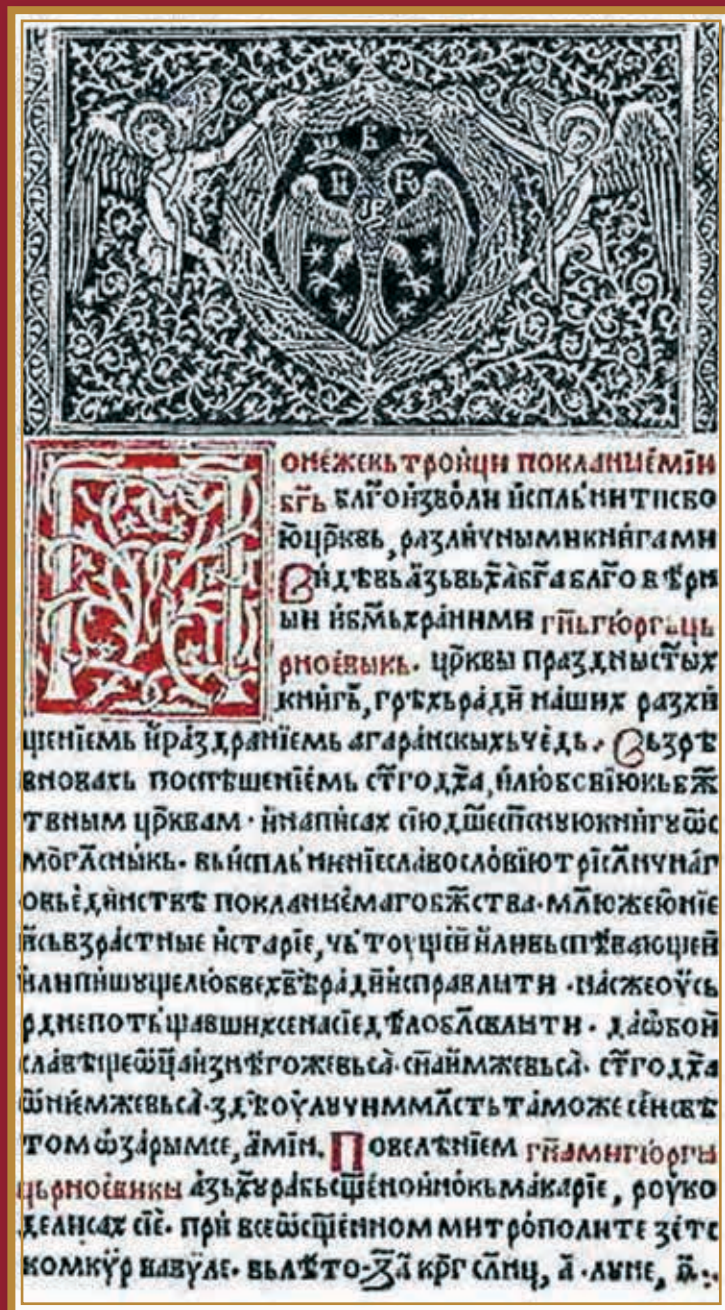 І Б Г
ОНЕЖЕ КЬ ТРОЙЦИ ПОКЛАНИЕМЇИ
бг҃ь благоизволи исплънити сво
ю црковь, различными книгами
Видѣвь азь вь ха бга благовѣри
ыи и бм҃ь храними гн҃ь гюргь ць
рноевыкь. црквы праздны ст҃ых
книгь, грѣхь ради наших разхи
щениемь и раздраниемь агаранскыхь чедь. Вьзрѣ
вновахь поспѣшениемь ст҃го дх҃а, и любовїю кь бж҃
твным црквам. и написах сїю дш҃еспсную книгу ѿс
могласныкь. вь исплънение славословїю трїслнчнаг
о вь единствѣ покланиемаго бж҃ства. млю же юнїе
и сьврастные и старїе, чьтоущей или вьспѣвающей
или пишуще любве хв҃ѣ ради исправляти. нас же оусь
рдне потьщавших се на сїе дѣло блсвляти. да ѡбой
славѣще ѿца изнѣгоже вьса. сн҃а имже вьса. ст҃го дх҃а
ѡ нїемже вьса. здѣ оулучим млсть таможе и свѣ
том ѡзарым се, аминь. Повелѣнїем гн҃а ми гюргы
црьноевикы азь х҃у рабь сщ҃енноинокь макарїе, роуко
делисах сїе. при всеѡсщ҃енном митрополите зетс
ком кўр вавўле. вь лѣто ҂з҃а крг слнц, а҃. луне, д҃.